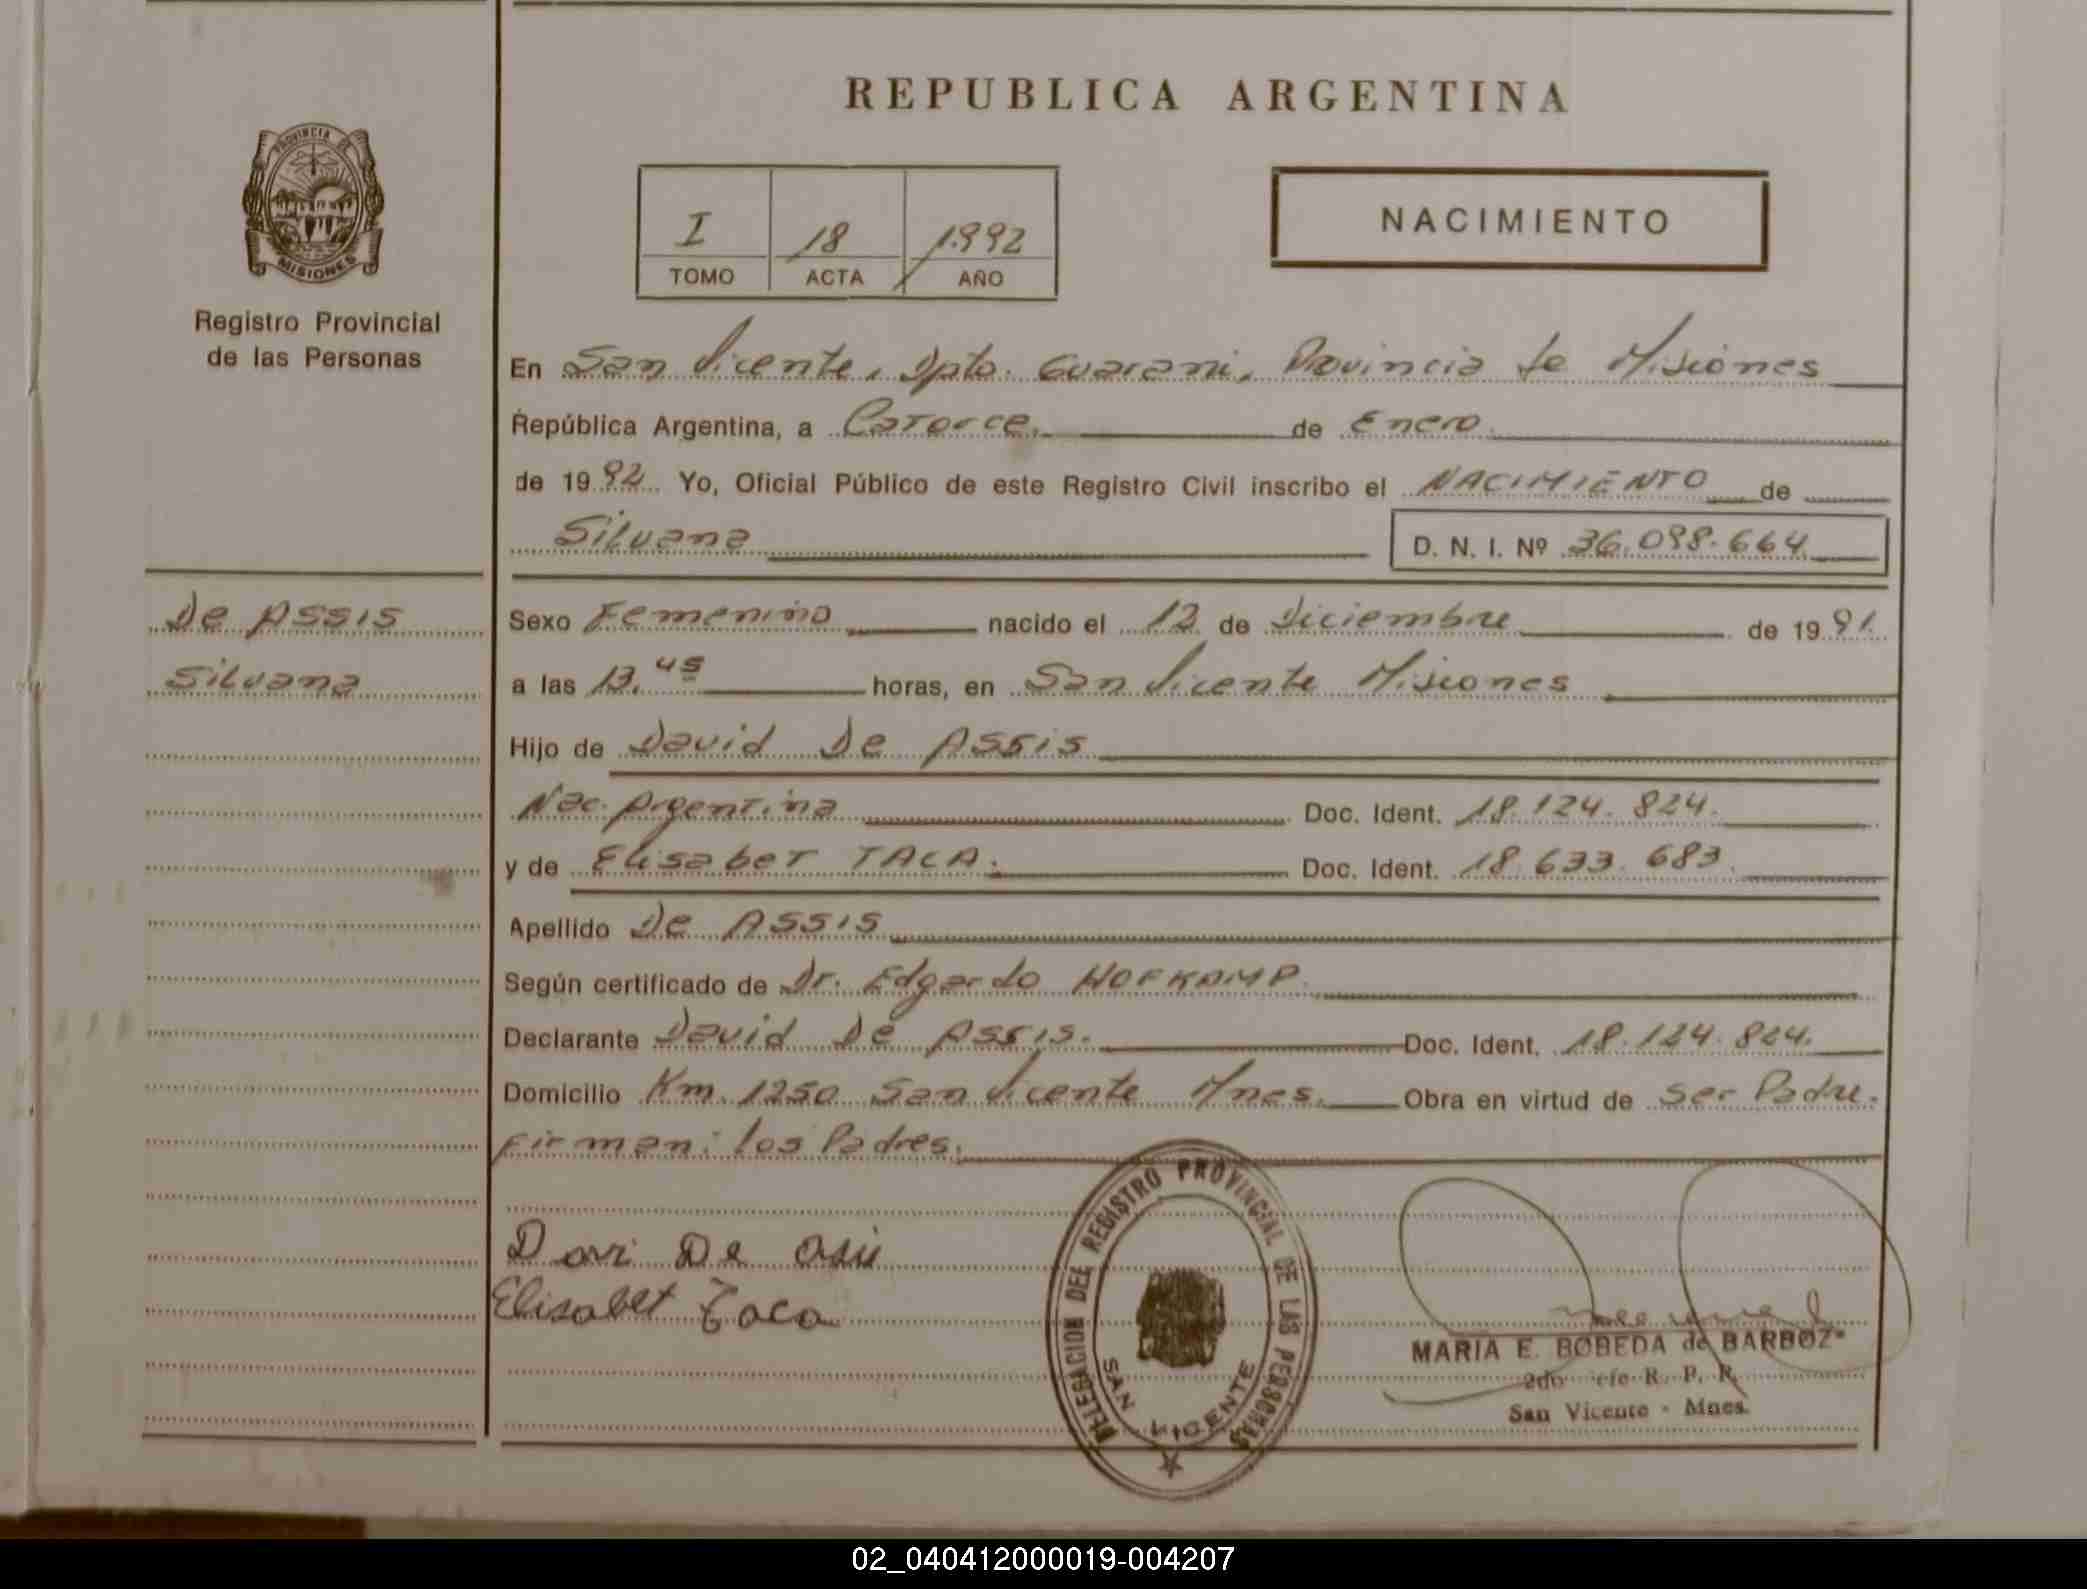 REPUBLICA ARGENTINA
PROVINCIA DE
MISIONES
Registro Provincial
de las Personas
I 18 1.992
TOMO ACTA AÑO
NACIMIENTO
En San Vicente, Dpto. Guarani, Provincia de Misiones
República Argentina, a Catorce. de Enero.
de 19 92 Yo, Oficial Público de este Registro Civil inscribo el NACIMIENTO de
Silvana D. N. I. Nº 36.098.664
De Assis
Silvana
Sexo Femenino nacido el 12 de Diciembre de 19 91.
a las 13.45 horas, en San Vicente Misiones
Hijo de David De Assis
Nac. Argentina Doc. Ident. 18.124.824.
y de Elisabet TACA. Doc. Ident. 18.633.683.
Apellido De Assis
Según certificado de Dr. Edgardo HOFKAMP.
Declarante David De Assis. Doc. Ident. 18.124.824.
Domicilio Km. 1250 San Vicente Mnes. Obra en virtud de ser Padre.
Firman: los Padres.
Davi De Asis
Elisabet Taca
DELEGACION DEL REGISTRO PROVINCIAL DE LAS PERSONAS
SAN VICENTE
MARIA E. BOBEDA de BARBOZ
2do efe R. P. P.
San Vicente - Mnes.
02_040412000019-004207